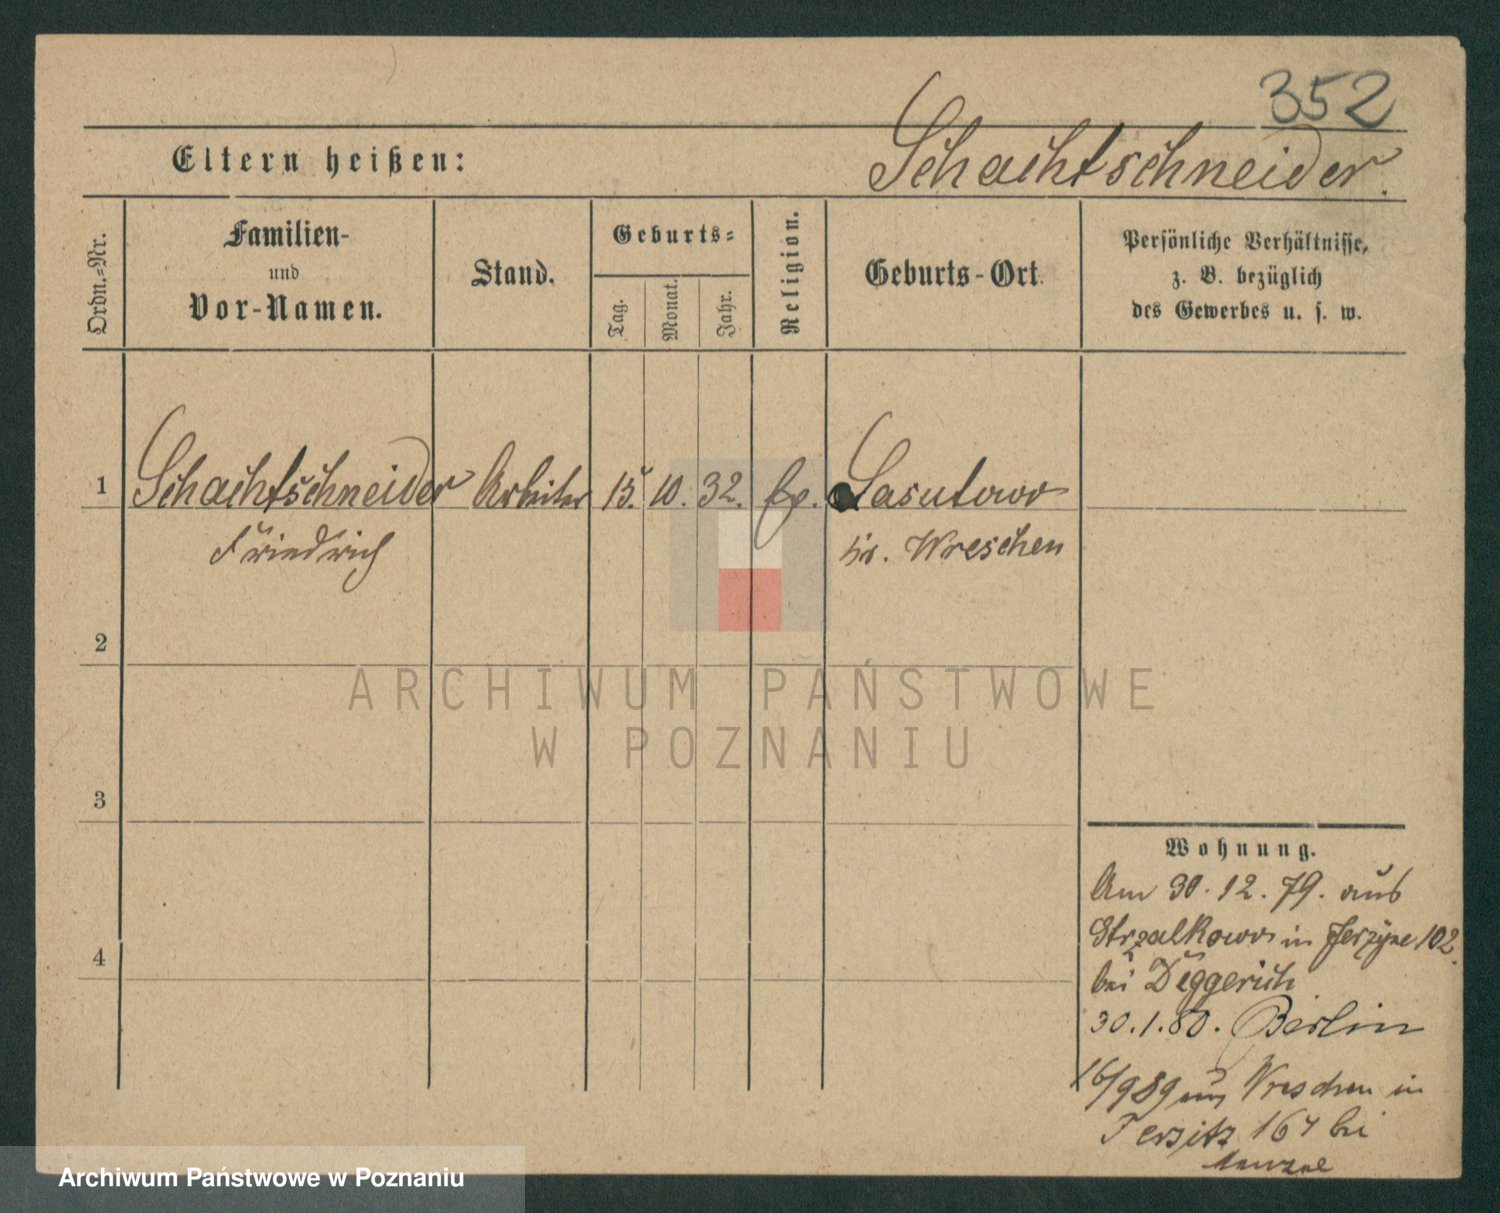 352
Schachtschneider.
Eltern heißen:
Ordn.-Nr.
Familien-
und
Vor-Namen.
Stand.
Geburts-
Tag.
Monat.
Jahr.
Religion.
Geburts-Ort.
Persönliche Verhältnisse,
z. B. bezüglich
des Gewerbes u. s. w.
1 Schachtschneider Arbeiter 15. 10. 32. Ev. Sasutowo
Friedrich Kr. Wreschen
2
3
4
ARCHIWUM PAŃSTWOWE
W POZNANIU
Wohnung.
Am 30.12.79. aus
Strzalkowo in Jerzyce 102.
bei Deggerich
30.1.80. Berlin
16/9 89 aus Wreschen in
Jersitz 164 bei
Archiwum Państwowe w Poznaniu